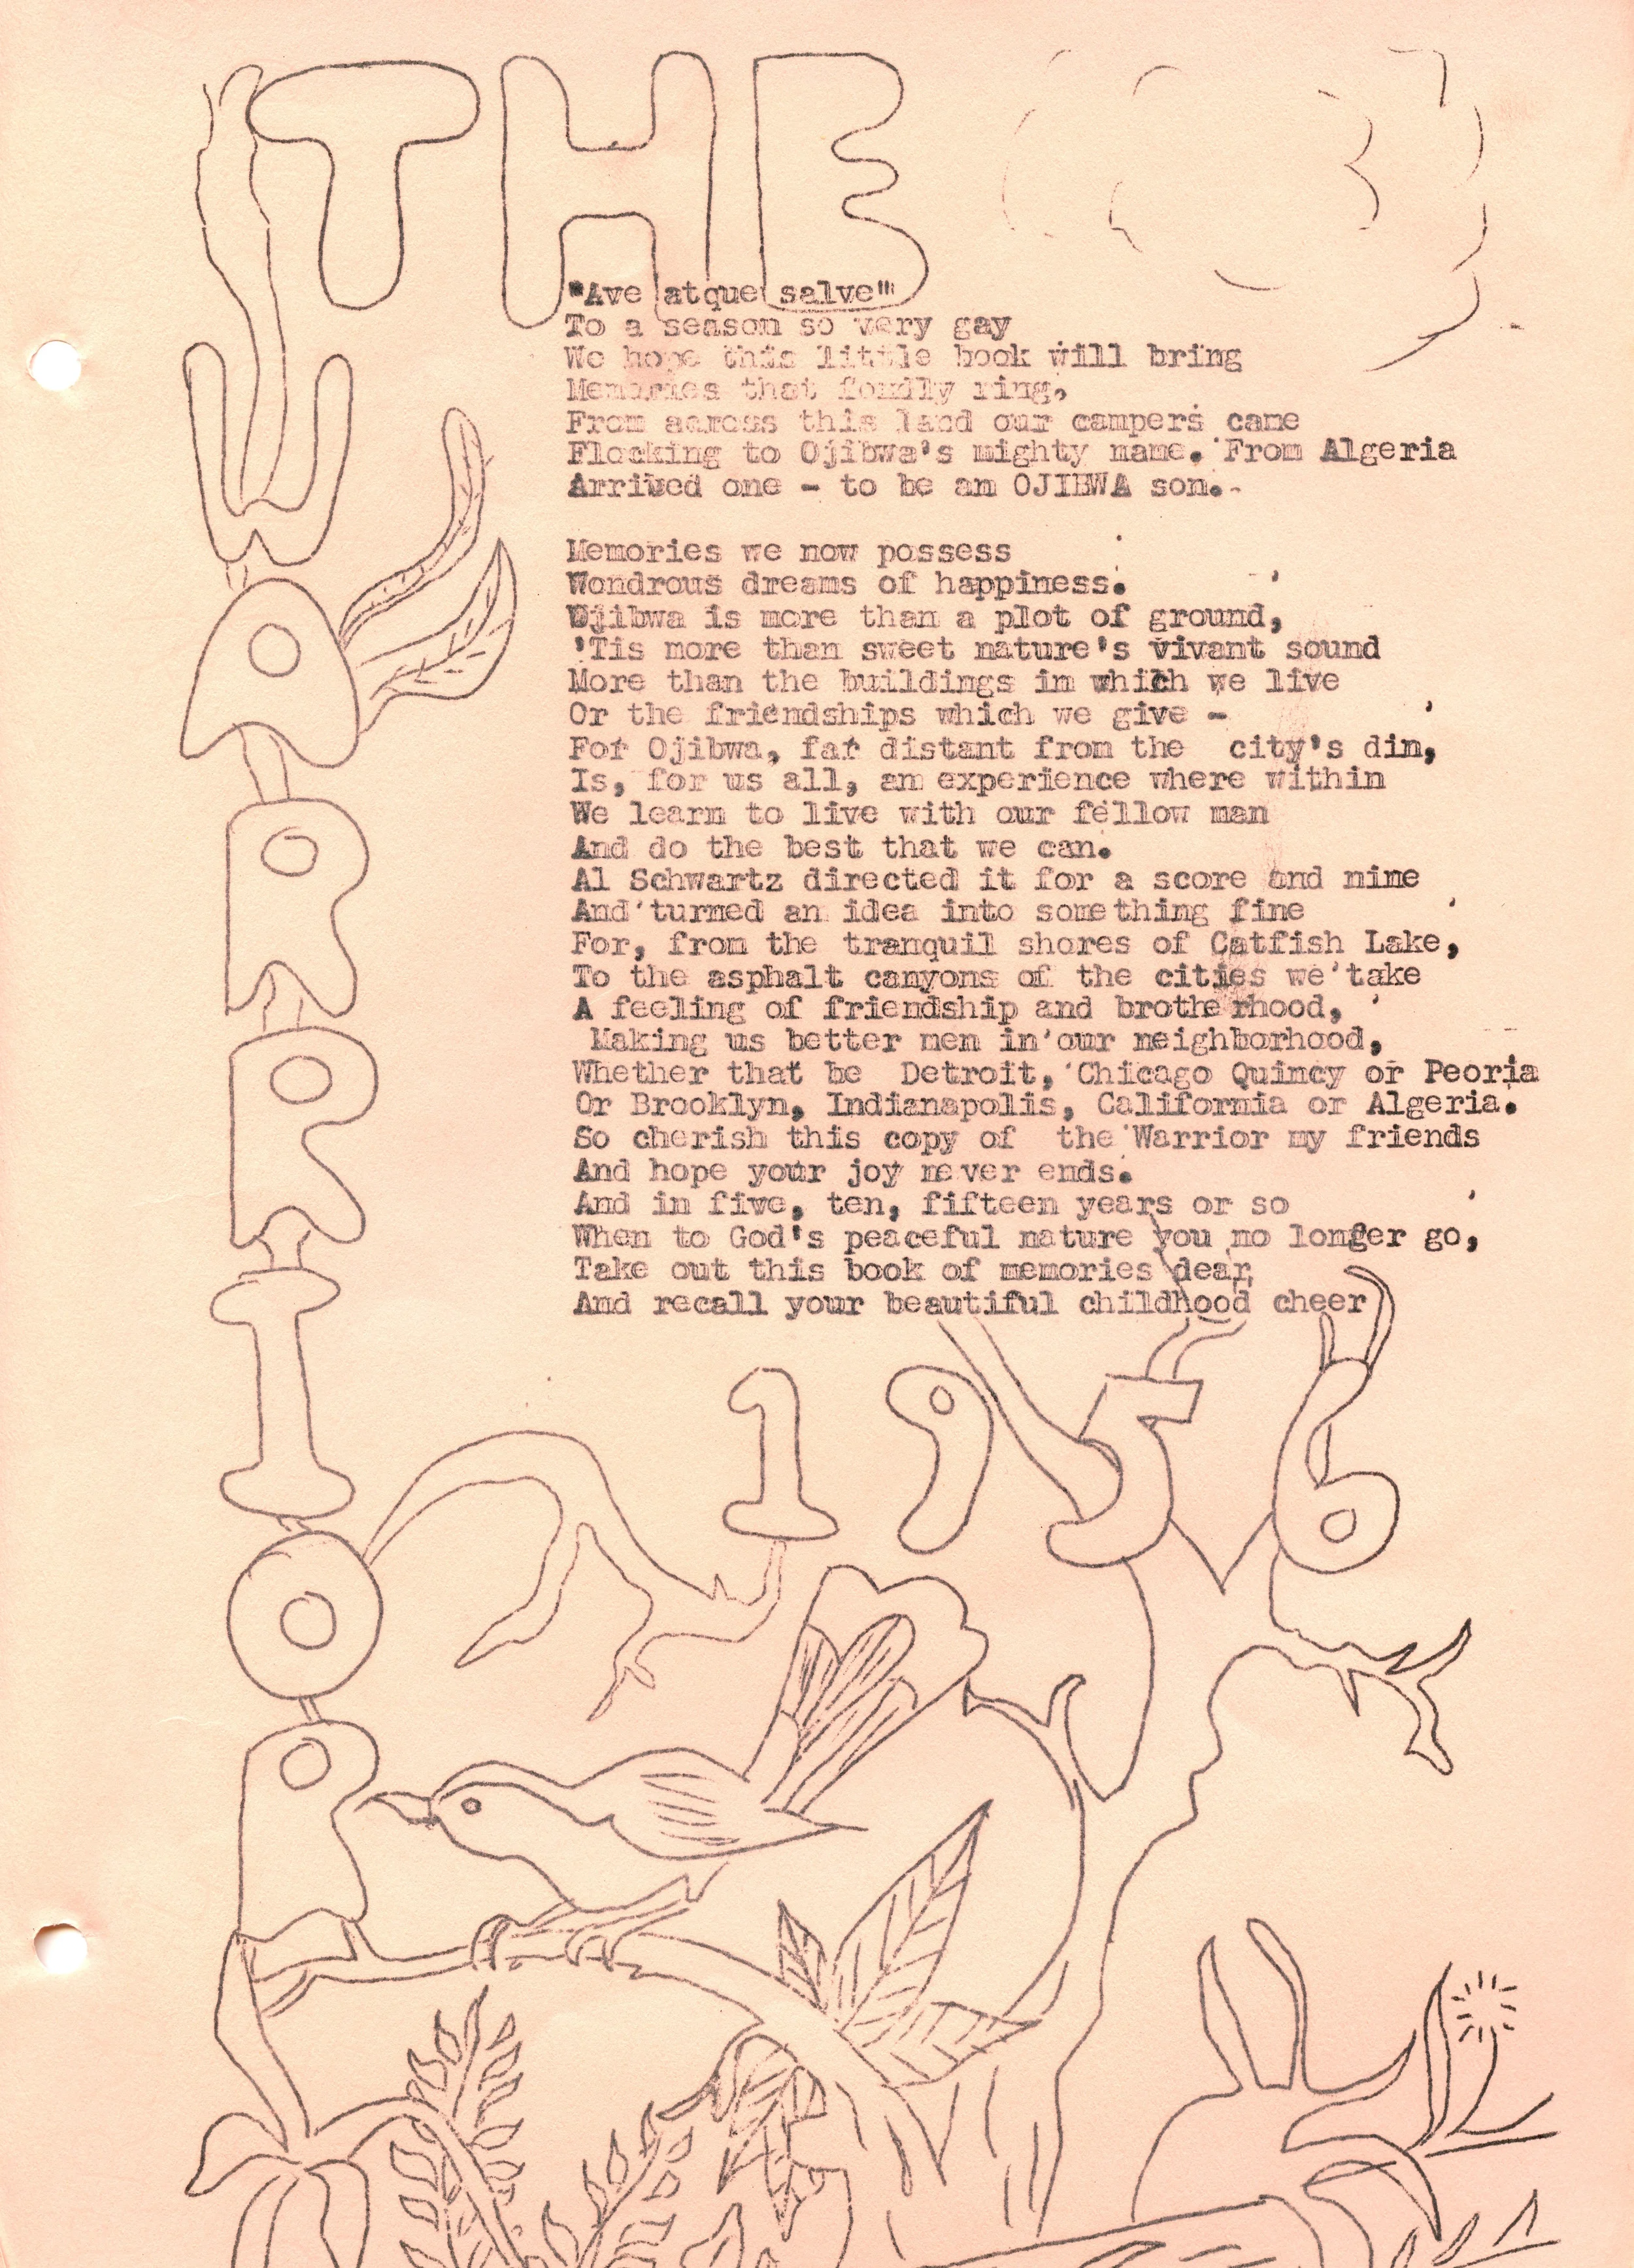 THE
WARRIOR
"Ave atque salve"
To a season so very gay
We hope this little book will bring
Memories that fondly ring.
From across this land our campers came
Flocking to Ojibwa's mighty name. From Algeria
Arrived one - to be an OJIBWA son.

Memories we now possess
Wondrous dreams of happiness.
Ojibwa is more than a plot of ground,
'Tis more than sweet nature's vivant sound
More than the buildings in which we live
Or the friendships which we give -
For Ojibwa, far distant from the city's din,
Is, for us all, an experience where within
We learn to live with our fellow man
And do the best that we can.
Al Schwartz directed it for a score and nine
And turned an idea into something fine
For, from the tranquil shores of Catfish Lake,
To the asphalt canyons of the cities we take
A feeling of friendship and brotherhood,
Making us better men in our neighborhood,
Whether that be Detroit, Chicago Quincy or Peoria
Or Brooklyn, Indianapolis, California or Algeria.
So cherish this copy of the Warrior my friends
And hope your joy never ends.
And in five, ten, fifteen years or so
When to God's peaceful nature you no longer go,
Take out this book of memories dear,
And recall your beautiful childhood cheer
1956